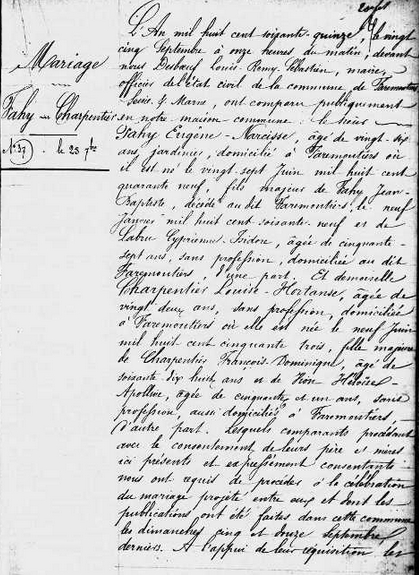 Mariage
Fahy - Charpentier
N° 37 . le 25 7bre
L'An mil huit cent soixante quinze, le vingt
cinq Septembre à onze heures du matin, devant
nous Desbœuf Louis-Remy Sébastien, maire,
officier de l'état civil de la commune de Faremoutiers
Seine & Marne, ont comparu publiquement
en notre maison commune : le sieur
Fahy Eugène-Narcisse, âgé de vingt-six
ans, jardinier, domicilié à Faremoutiers où
il est né le vingt-sept Juin mil huit cent
quarante neuf, fils majeur de Fahy Jean-
Baptiste, décédé au dit Faremoutiers, le neuf
Janvier mil huit cent soixante-neuf et de
Labru Cyprienne-Isidore, âgée de cinquante-
sept ans, sans profession, domiciliée au dit
Faremoutiers, d'une part, Et demoiselle
Charpentier Louise-Hortanse, âgée de
vingt deux ans, sans profession, domiciliée
à Faremoutiers où elle est née le neuf Juin
mil huit cent cinquante trois, fille majeure
de Charpentier François-Dominique, âgé de
soixante dix huit ans et de Héloïse-
Apolline, âgée de cinquante et un ans, sans
profession, aussi domiciliés à Faremoutiers,
d'autre part. Lesquels comparants procédant
avec le consentement de leurs père et mères
ici présents et expressément consentants
nous ont requis de procéder à la célébration
du mariage projeté entre eux et dont les
publications ont été faites dans cette commune
les dimanches cinq et douze Septembre
derniers. A l'appui de leur réquisition les